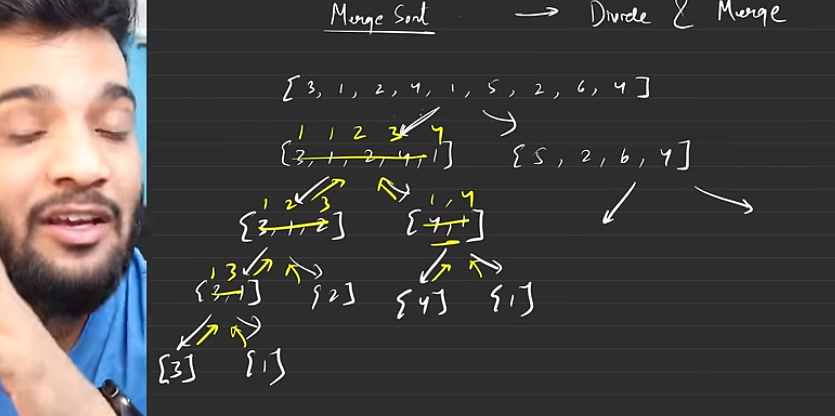 Merge Sort → Divide & Merge
[3, 1, 2, 4, 1, 5, 2, 6, 4]
1 1 2 3 4
[3, 1, 2, 4, 1] [5, 2, 6, 4]
1 2 3 1, 4
[3, 1, 2] [4, 1]
1 3
[3, 1] [2] [4] [1]
[3] [1]